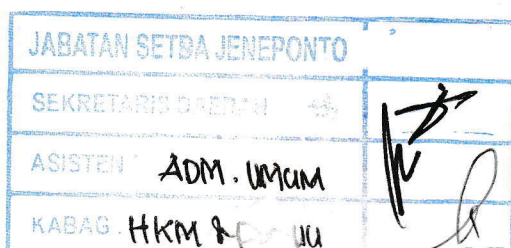 JABATAN SETDA JENEPONTO
SEKRETARIS DAERAH
ASISTEN ADM. UMUM
KABAG. HKM &